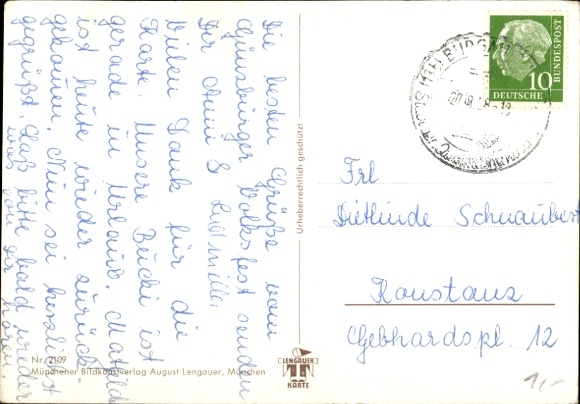 Die besten Grüße vom
Günzburger Volksfest senden
Dir Mimi & Ludmilla.
Vielen Dank für die
Karte. Unsere Bucki ist
gerade in Urlaub. Mathilde
ist heute wieder zurück-
gekommen. Nun sei herzlichst
gegrüßt. Laß bitte bald wieder
was von Dir hören.
Urheberrechtlich geschützt!
Nr. 2109
Münchener Bildkunstverlag August Lengauer, München
LENGAUER
KARTE
10
DEUTSCHE
BUNDESPOST
Frl
Dietlinde Schwaubert
Konstanz
Gebhardspl. 12
1,-